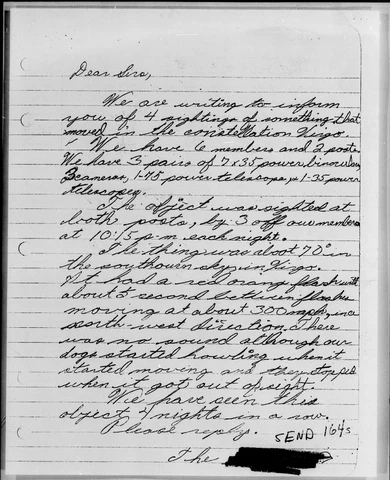 Dear Sirs,
We are writing to inform
you of 4 sightings of something that
moved in the constellation Virgo.
We have 6 members and 2 posts.
We have 3 pairs of 7x35 power, binoculars,
3 cameras, 1-75 power telescope, 1-35 power
telescopes.
The object was sighted at
both posts, by 3 off our members
at 10:15 p.m. each night.
The thing was aboot 70° in
the southourn sky, in Virgo.
It had a red orange flash with
about 5 second between flashes
moving at about 300 mph, in a
north-west direction. There
was no sound although our
dogs started howling when it
started moving and they stopped
when it got out of sight.
We have seen this
object 4 nights in a row.
Please reply.
SEND 164s
The